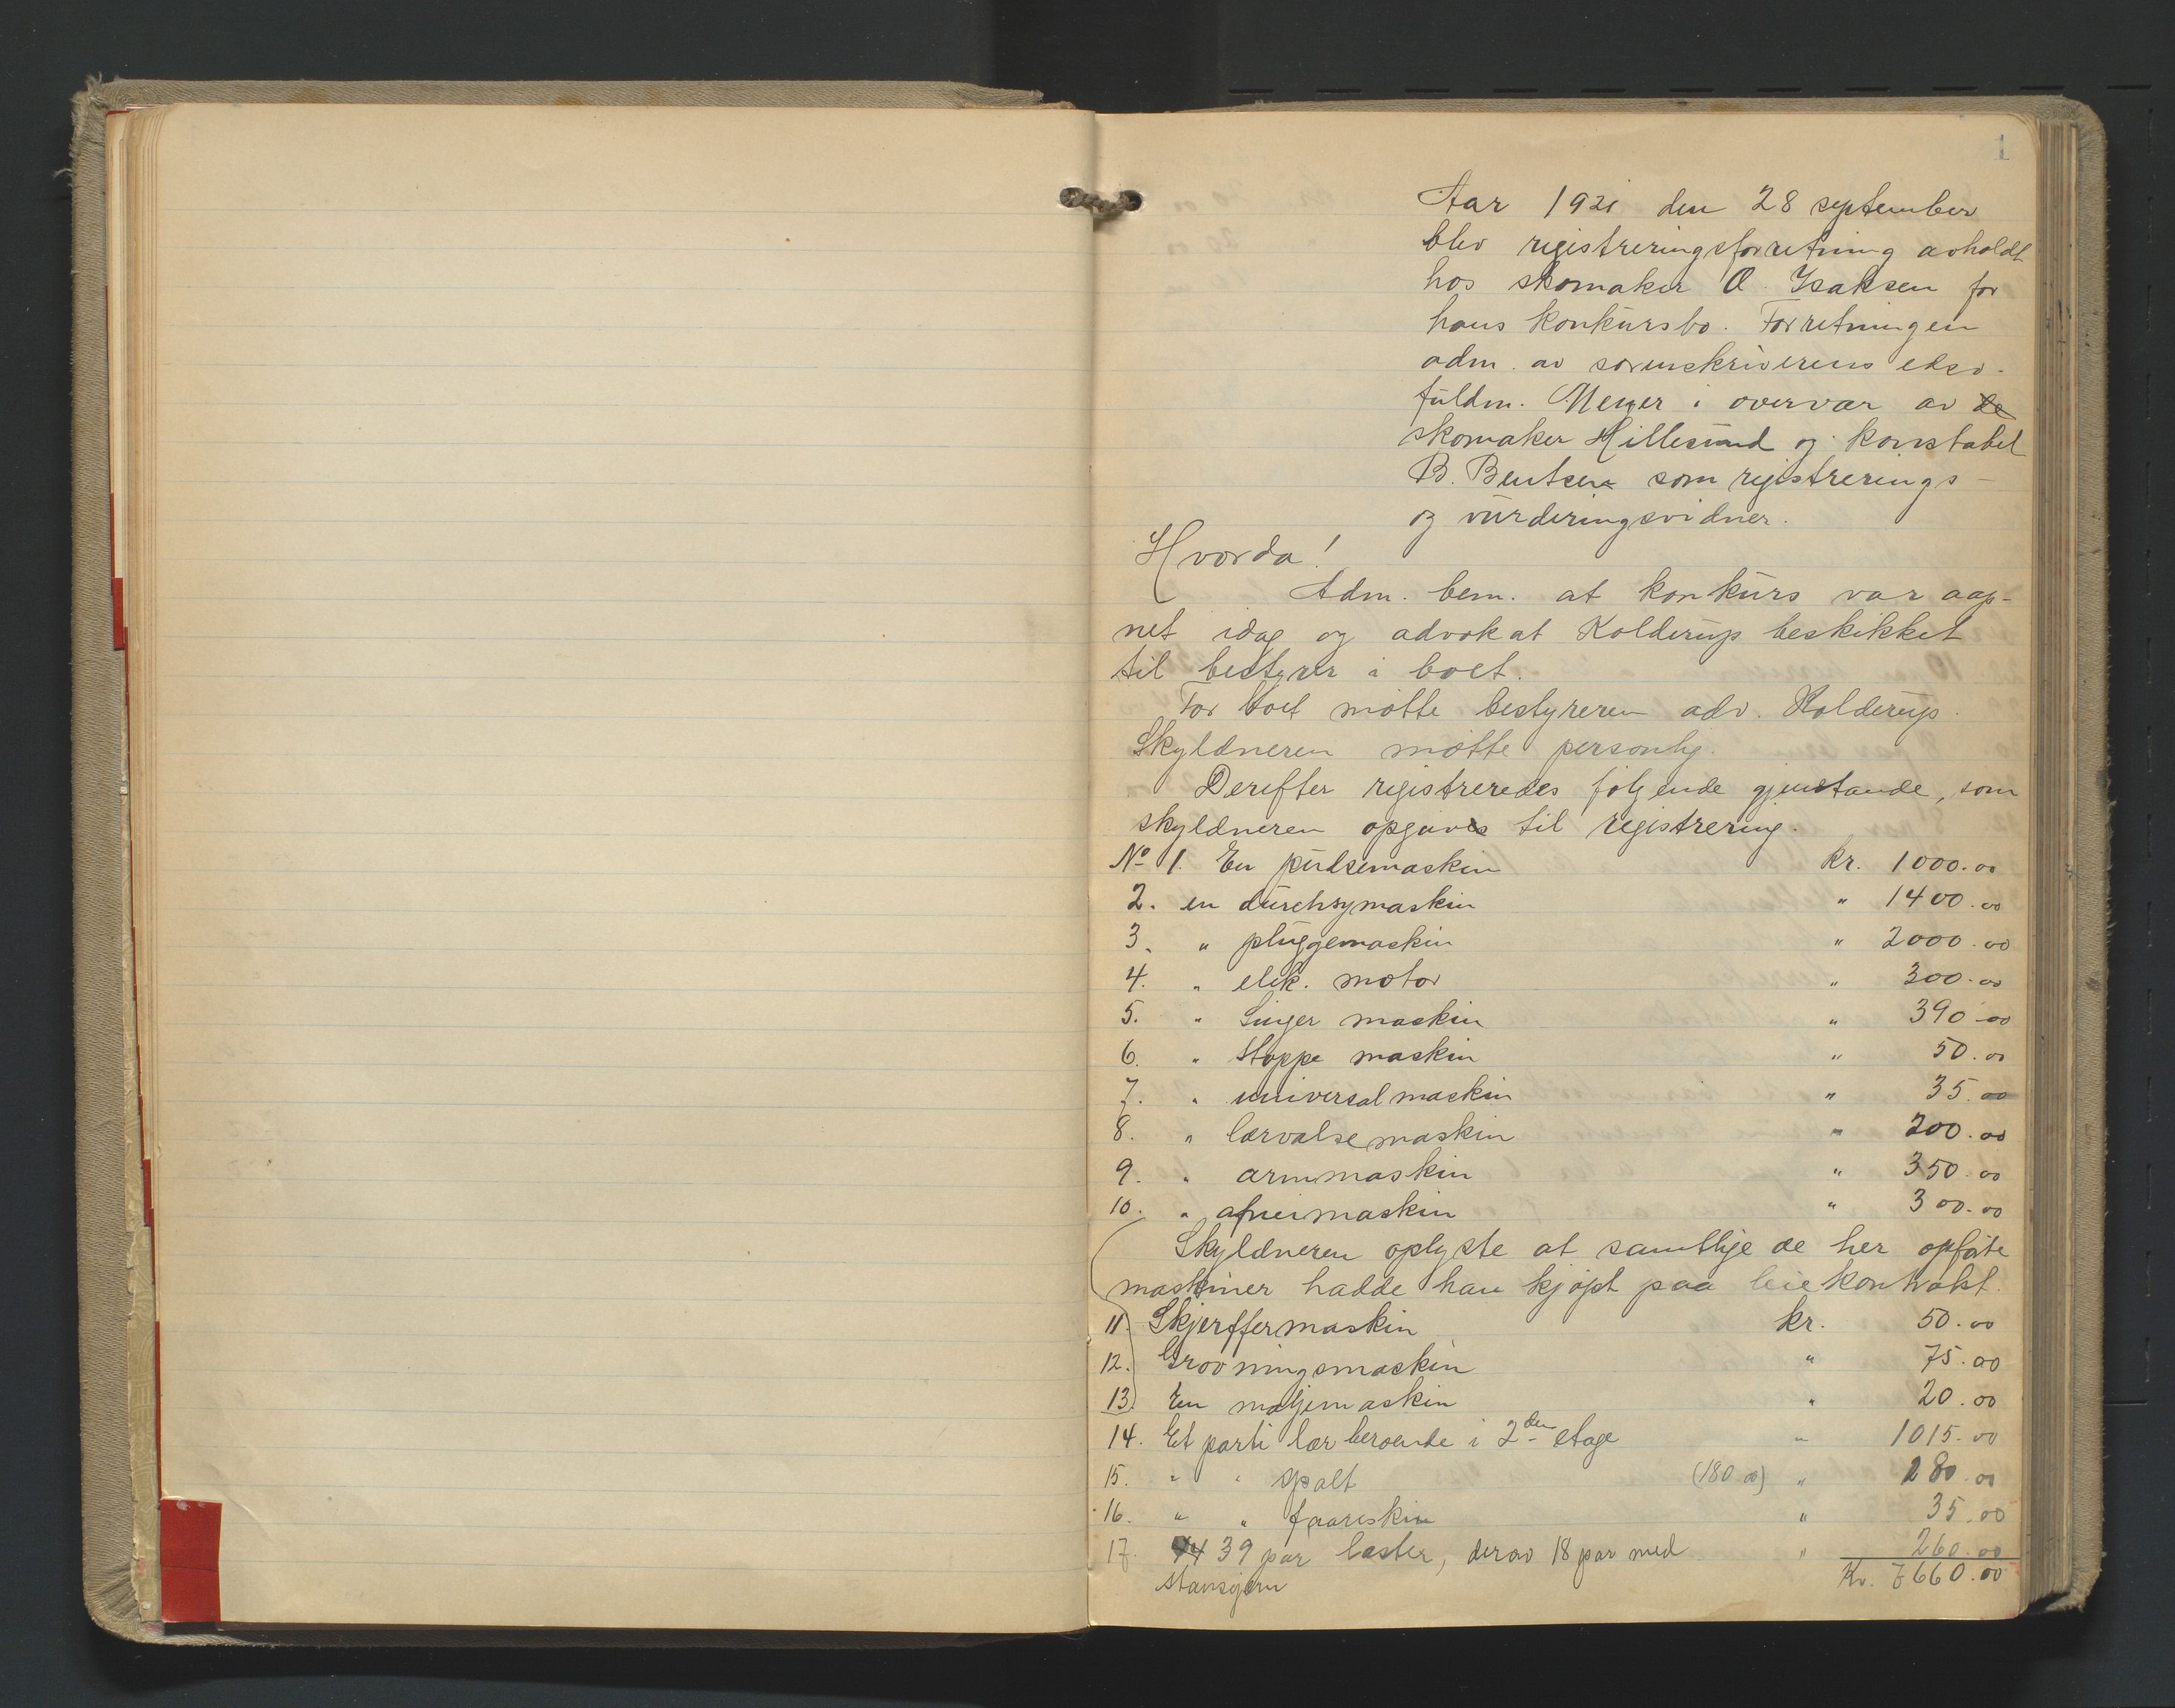 1
Aar 1921 den 28 september
blev registreringsforretning avholdt
hos skomaker O. Isaksen for
hans konkursbo. Forretningen
adm. av sorenskriverens edsv.
fuldm. Meyer i overvær av de
skomaker Hillesund og konstabel
B. Bentsen som registrerings-
og vurderingsvidner.
Hvorda!
Adm. bem. at konkurs var aap-
net idag og advokat Kolderup beskikket
til bestyrer i boet.
For boet møtte bestyreren adv. Kolderup.
Skyldneren møtte personlig.
Derefter registreredes følgende gjenstande, som
skyldneren opgaves til registrering.
No 1. En pudsemaskin kr. 1000.00
2. en durchsymaskin " 1400.00
3. " pluggemaskin " 2000.00
4. " elek. motor " 300.00
5. " Singer maskin " 390.00
6. " Stoppe maskin " 50.00
7. " universalmaskin " 35.00
8. " lærvalsemaskin " 200.00
9. " armmaskin " 350.00
10. " maskin " 300.00
Skyldneren oplyste at samtlige de her opførte
maskiner hadde han kjøpt paa leiekontrakt.
11. Skjerffermaskin kr. 50.00
12. Groovningsmaskin " 75.00
13. En maljemaskin " 20.00
14. Et parti lær beroende i 2den etage " 1015.00
15. " " spalt (180 00) " 180.00
16. " " faareskin " 35.00
17. 44 39 par læster, derav 18 par med " 260.00
stansejern Kr. 7660.00